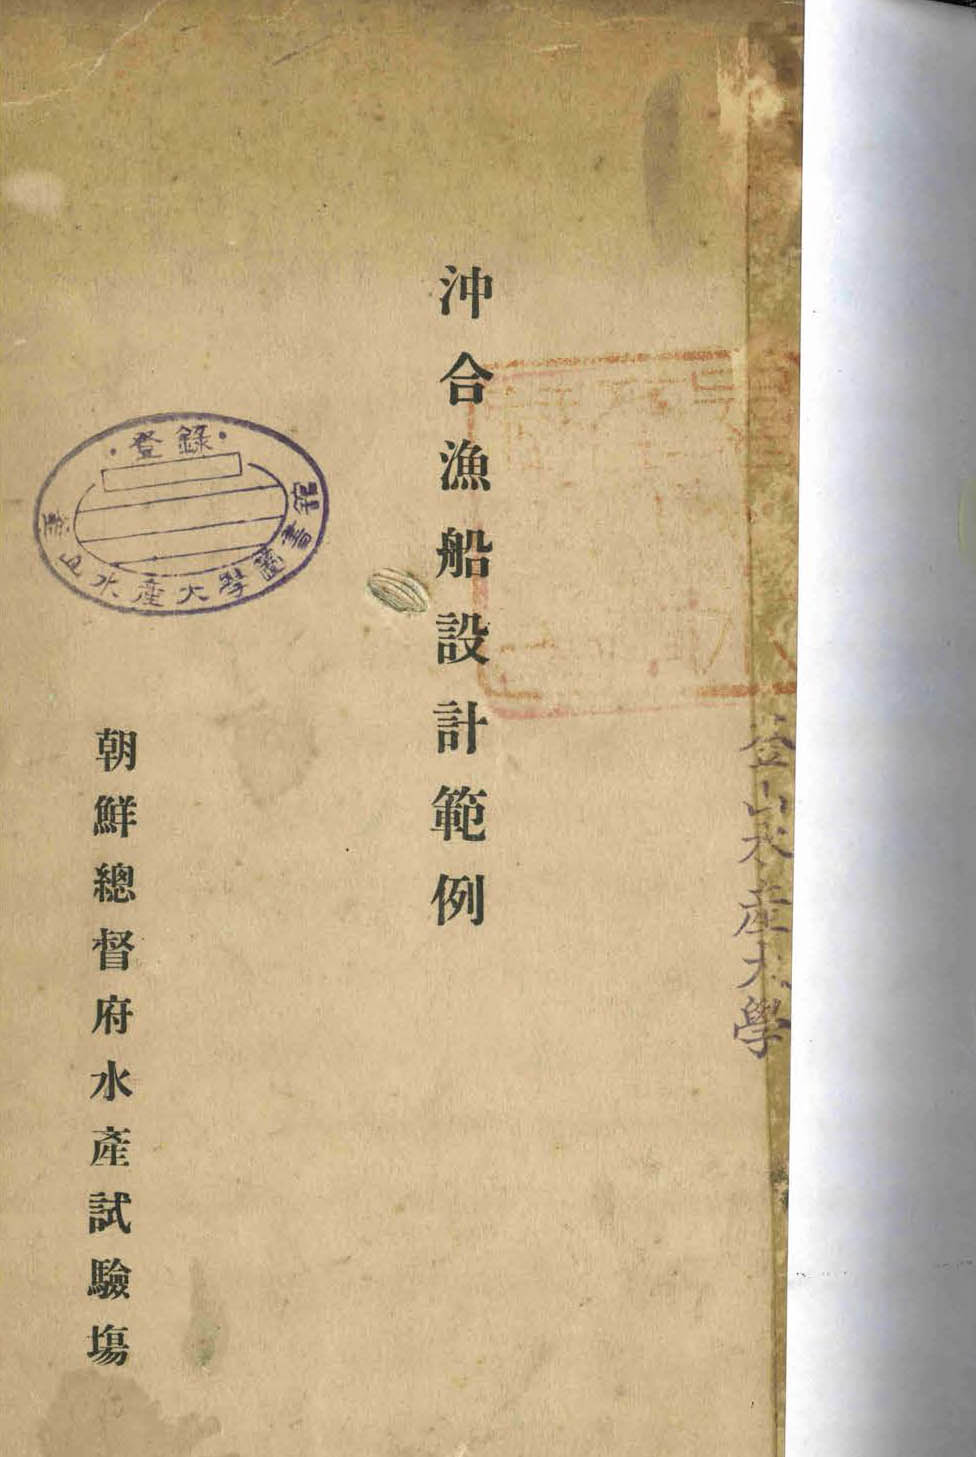 沖合漁船設計範例
登錄
釜山水產大學圖書館
朝鮮總督府水產試驗場
釜山水產大學